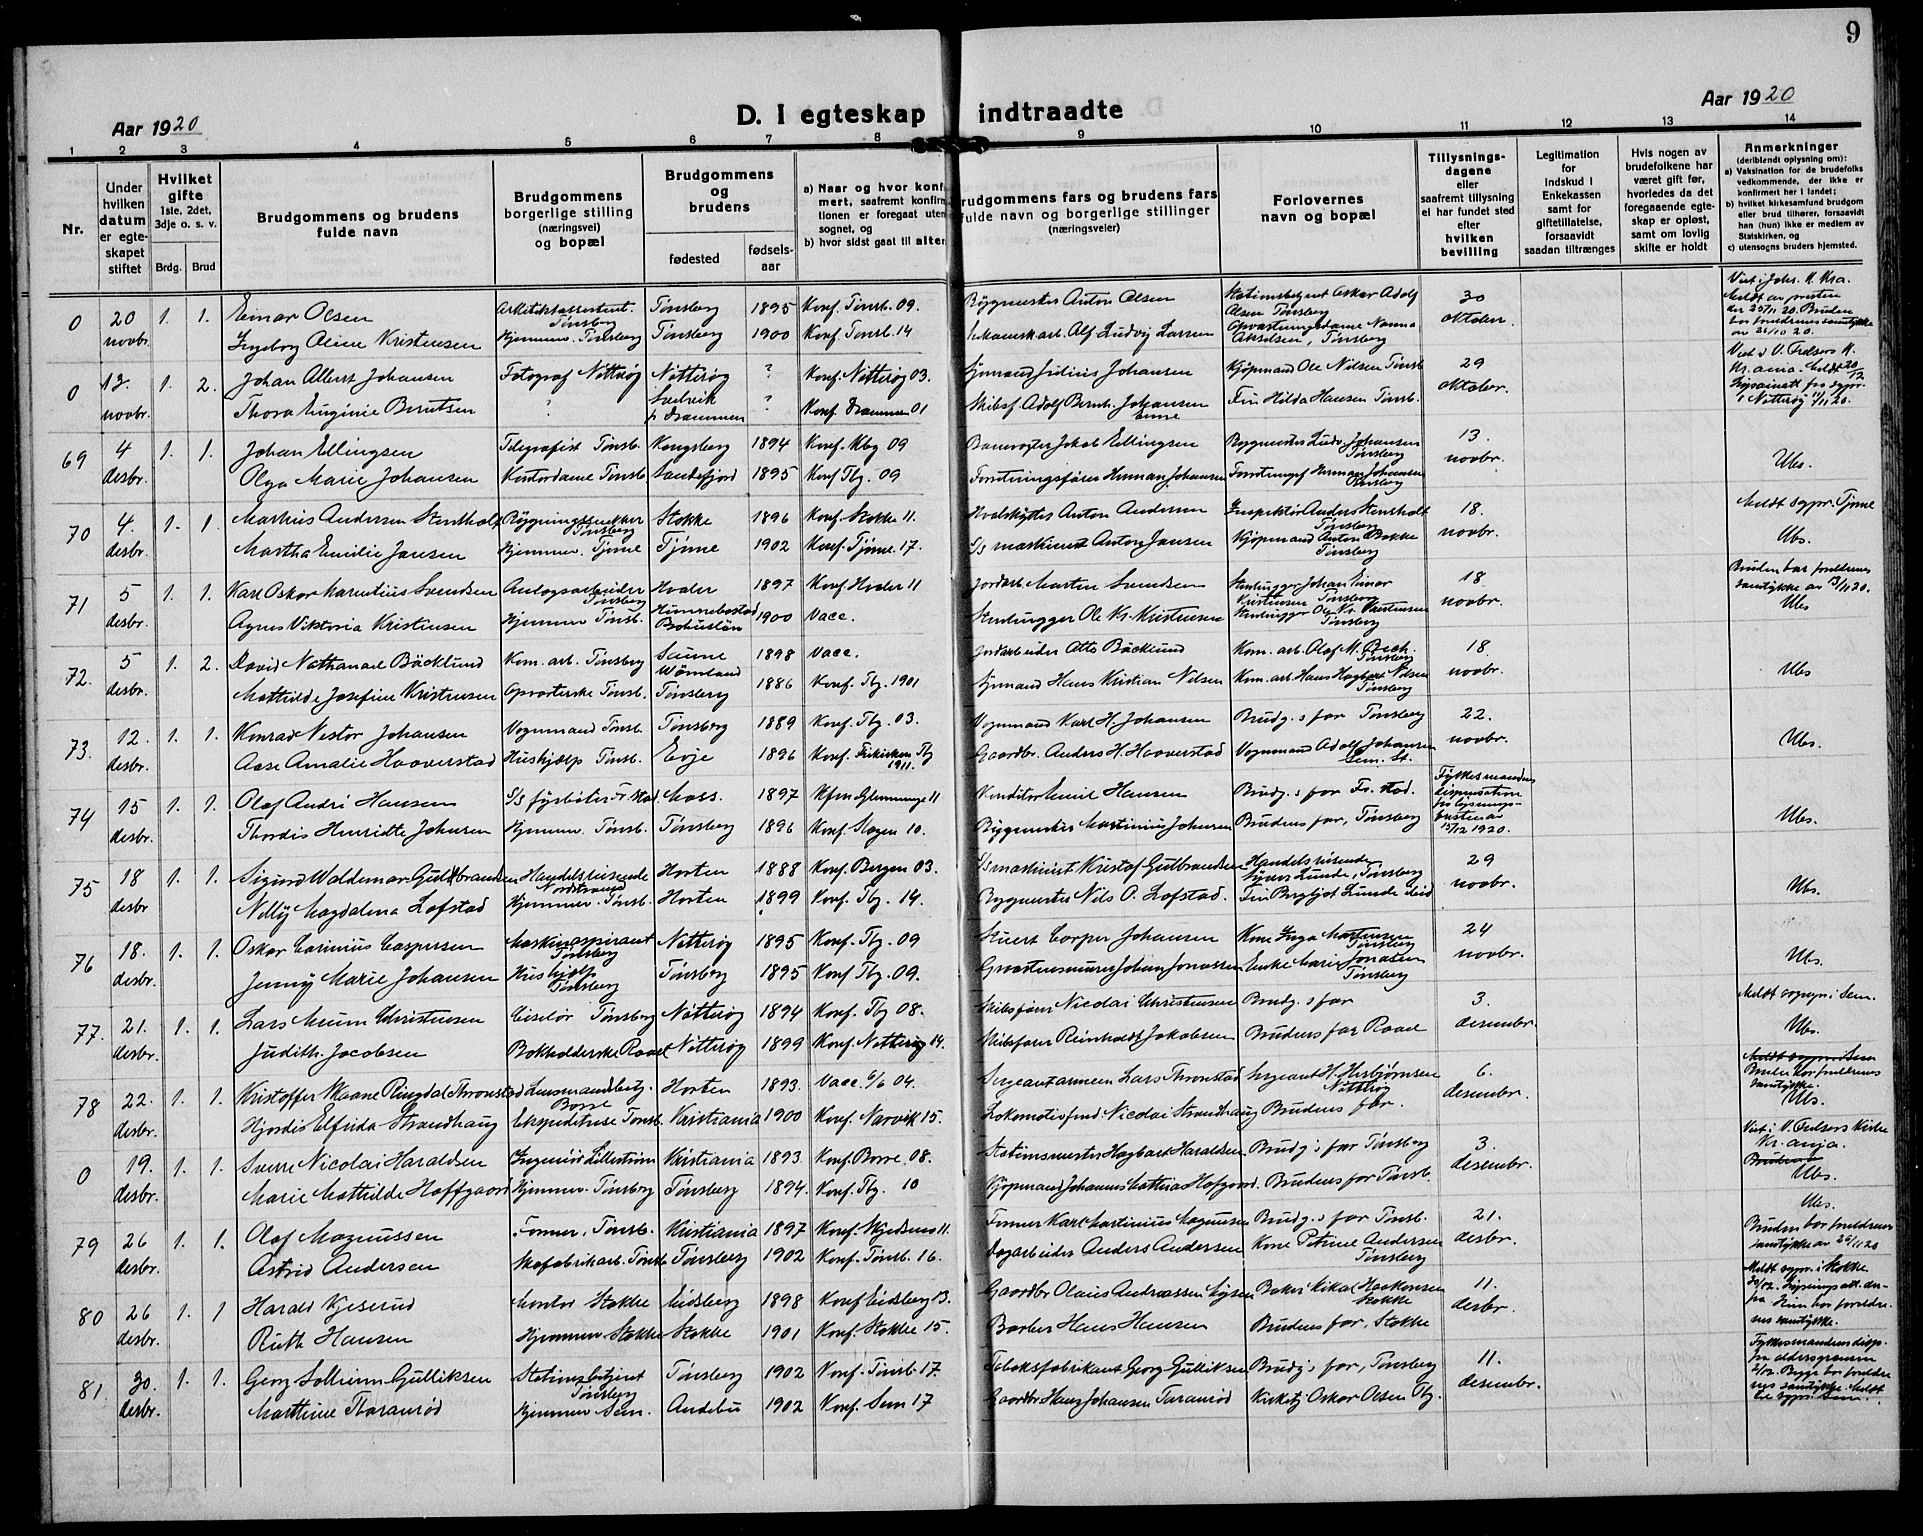 9
Aar 1920
D. I egteskap indtraadte
Aar 1920
1 2 3 4 5 6 7 8 9 10 11 12 13 14
Nr.
Under hvilken datum er egteskapet stiftet
Hvilket gifte 1ste, 2det, 3dje o. s. v.
Brdg. Brud
Brudgommens og brudens fulde navn
Brudgommens borgerlige stilling (næringsvei) og bopæl
Brudgommens og brudens
fødested
fødselsaar
a) Naar og hvor konfirmert, saafremt konfirmationen er foregaat utensognet, og
b) hvor sidst gaat til alters
Brudgommens fars og brudens fars fulde navn og borgerlige stillinger (næringsveier)
Forlovernes navn og bopæl
Tillysningsdagene eller saafremt tillysning ei har fundet sted efter hvilken bevilling
Legitimation for indskud i Enkekassen samt for giftetillatelse, forsaavidt saadan tiltrænges
Hvis nogen av brudefolkene har været gift før, hvorledes da det foregaaende egteskap er opløst, samt om lovlig skifte er holdt
Anmerkninger (deriblandt oplysning om):
a) Vaksination for de brudefolks vedkommende, der ikke er konfirmert her i landet;
b) hvilket kirkesamfund brudgom eller brud tilhører, forsaavidt han (hun) ikke er medlem av Statskirken, og
c) utensogns bruders hjemsted.
0 20 novbr. 1. 1. Einar Olsen Arkitektassistent. Tønsberg Tønsberg 1895 Konf. Tønsb. 09. Bygmester Anton Olsen Stationsbetjent Oskar Adolf Olsen Tønsberg 30 oktober.
Ingeborg Oline Kristensen Hjemmev. Tønsberg Tønsberg 1900 Konf. Tønsb. 14 Mekanisk arb. Alf Ludvig Larsen Opvartningsdame Nanna Akselsen, Tønsberg
0 13. novbr. 1. 2. Johan Albert Johansen Fotograf Nøtterøy Nøtterøy ? Konf. Nøtterøy 03. Sjømand Julius Johansen Kjøpmand Ole Nilsen Tønsb 29 oktober. Viet i V. Frelsers K. Kr.ania.
Thora Euginie Berntsen ? Svelvik p. Drammen ? Konf. Drammen 01 Skibsf. Adolf Bernh. Johansen Frk Hilda Hansen Tønsb.
69 4 desbr. 1. 1. Johan Ellingsen Telegrafist Tønsb. Kongsberg 1894 Konf. Kbg 09 Banevogter Jakob Ellingsen Bygmester Ludv. Johansen Tønsberg 13. novbr. Ubs.
Olga Marie Johansen Kontordame Tønsb Sandefjord 1895 Konf Tbg. 09 Forretningsfører Herman Johansen Forretningsf Herman Johansen Tønsberg
70 4. desbr. 1. 1. Markus Andersen Stensholt Bygningssnekker Tønsberg Stokke 1896 Konf. Stokke 11. Hvalskytter Anton Andersen Inspektør Anders Stensholt Tønsberg 18. novbr. Meldt sogpr. Tjøme Ubs.
Martha Emilie Jansen Hjemmev. Tjøme Tjøme 1902 Konf. Tjøme 17. S/s maskinist Anton Jansen Kjøpmand Anton Bakke Tønsberg
71 5 desbr. 1. 1. Karl Oskar Marentius Svendsen Anlægsarbeider Tønsberg Hvaler 1897 Konf Hvaler 11 Jordarb Marten Svendsen Stenhugger Johan Einar Kristensen Tønsberg 18 novbr. Bruden har forældrenes samtykke av 13/11 20. Ubs
Agnes Viktoria Kristensen Hjemmev Tønsb. Hunnebostad Bohuslän 1900 Vacc. Stenhugger Ole Kr. Kristensen Stenhugger Ole Kr. Kristensen Tønsberg
72. 5 desbr. 1. 2. David Nathanael Bäcklund Kom. arb. Tønsberg Sunne Wärmland 1898 Vacc. Jordarbeider Otto Bäcklund Kom. arb. Olaf M. Bech. Tønsberg 18. novbr. Ubs
Mathilde Josefine Kristensen Opvarterske Tønsb. Tønsberg 1886 Konf. Tbg. 1901 Sjømand Hans Kristian Nilsen Kom. arb. Hans Hagbart Nilsen Tønsberg
73. 12. desbr. 1. 1. Konrad Nestor Johansen Vognmand Tønsb. Tønsberg 1889 Konf. Tbg. 03. Vognmand Karl H. Johansen Brudg.s far Tønsberg 22. novbr. Ubs.
Aase Amalie Hooverstad Hushjælp Tønsb. Evje 1896 Konf. Frikirken Tbg 1911. Gaardbr. Anders H. Hooverstad Vognmand Adolf Johansen Sem. St.
74 15 desbr. 1. 1. Olaf André Hansen S/s fyrbøter Fr.stad Moss. 1897 Kfm Glemminge 11 Konditor Emil Hansen Brudg.s far Fr.stad. Fylkesmandens dispensation fra lysningsfristen av 15/12 1920. Ubs.
Thordis Henriette Johnsen Hjemmev. Tønsb. Tønsberg 1896 Konf. Slagen 10. Bygmester Martinius Johnsen Brudens far, Tønsberg
75 18 desbr 1. 1. Sigurd Waldemar Guldbrandsen Handelsreisende Nordstrand Horten 1888 Konf. Bergen 03. S/s maskinist Kristof Gulbrandsen Handelsreisende Lunde, Tønsberg 29 novbr. Ubs.
Nelly Magdalena Lofstad Hjemmev. Tønsb. Horten 1899 Konf. Tbg. 14. Bygmester Nils O. Lofstad. Frk Bergljot Lunde
76 18. desbr. 1. 1. Oskar Carinius Caspersen Maskinaspirant Tønsberg Nøtterøy 1895 Konf. Tbg. 09 Stuert Casper Johansen Kone Inga Martinsen Tønsberg 24 novbr. Ubs.
Jenny Marie Johansen Hushjelp Tønsberg Tønsberg 1895 Konf. Tbg. 09. Graastensmurer Johan Jonassen Enke Marie Jonassen Tønsberg
77. 21. desbr. 1. 1. Lars Muum Christensen Ciselør Tønsberg Nøtterøy 1894 Konf. Tbg 08. Skibsfører Nicolai Christensen Brudg.s far 3. desember. Meldt sognpr. i Sem. Ubs.
Judith Jacobsen Bokholderske Raael Nøtterøy 1899 Konf. Nøtterøy 14. Skibsfører Reinholdt Jakobsen Brudens far Raael
78 22. desbr. 1. 1. Kristoffer Skaane Ringdal Thronstad Lensmandsbetj. Borre Horten 1893. Vacc. 6/6 04. Sergeant armeen Lars Thronstad Sergeant H. Herbjørnsen Nøtterøy 6. desember. Meldt sognpr. i Sem Bruden har forældrenes samtykke. Ubs.
Hjørdis Elfrida Strandhaug Ekspeditrise Tønsb. Kristiania 1900 Konf. Narvik 15. Lokomotivfører Nicolai Strandhaug Brudens far.
0 19. desbr. 1. 1. Sverre Nicolai Haraldsen Ingeniør Lillestrøm Kristiania 1893. Konf. Borre 08. Stationsmester Hagbart Haraldsen Brudg.s far Tønsberg 3. desember. Viet i V. Frelsers Kirke Kr.ania. Ubs.
Marie Mathilde Hoffgaard Hjemmev. Tønsberg Tønsberg 1894. Konf. Tbg. 10 Kjøpmand Johannes Mathias Hofgaard. Brudens far Tønsb.
79 26 desbr. 1. 1. Olaf Magnussen Former, Tønsb. Kristiania 1897 Konf. Skjedsmo 11. Former Karl Martinius Magnussen Brudg.s far Tønsb. 21. desbr. Ubs. Bruden har forældrenes samtykke av 24/11 20
Astrid Andersen Skofabrikarb. Tønsb Tønsberg 1902 Konf. Tønsb. 16. Dagarbeider Anders Andersen Kone Petrine Andersen Tønsberg
80 26 desbr. 1. 1 Harald Kjeserud Kontor Stokke Eidsberg 1898 Konf Eidsberg 13. Gaardbr Olaus Andreassen Baker Mikal Haakonsen Stokke 11. desbr. Meldt sogpr. i Stokke
Ruth Hansen Hjemmev Stokke Stokke 1901 Konf. Stokke 15. Barber Hans Hansen Brudens far, Stokke
81. 30. desbr. 1. 1. Georg Solheim Gulliksen Stationsbetjent Tønsberg Tønsberg 1902 Konf. Tønsb. 17. Tobaksfabrikant Georg Gulliksen Brudg's far, Tønsberg 11. desember. Fylkesmandens disps. fra aldersgrænsen
Marthine Taranrød Hjemmev Sem. Andebu 1902 Konf. Sem 17 Gaardbr Hans Johansen Taranrød Kirketj Oskar Olsen Tbg.